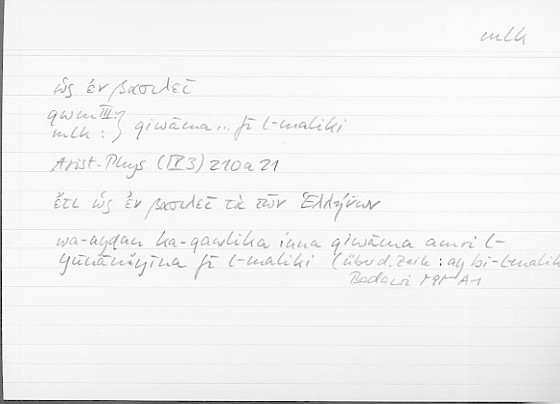 mlk
ὡς ἐν βασιλεῖ
qwm III:
mlk : } qiwāma ... fī l-maliki
Arist. Phys (IV 3) 210a21
ἔτι ὡς ἐν βασιλεῖ τὰ τῶν Ἑλλήνων
wa-ayḍan ka-qawlika inna qiwāma amri l-
Yūnānīyīna fī l-maliki (über d. Zeile: ay bi-l-malik
Badawi ٢٩٢ A1